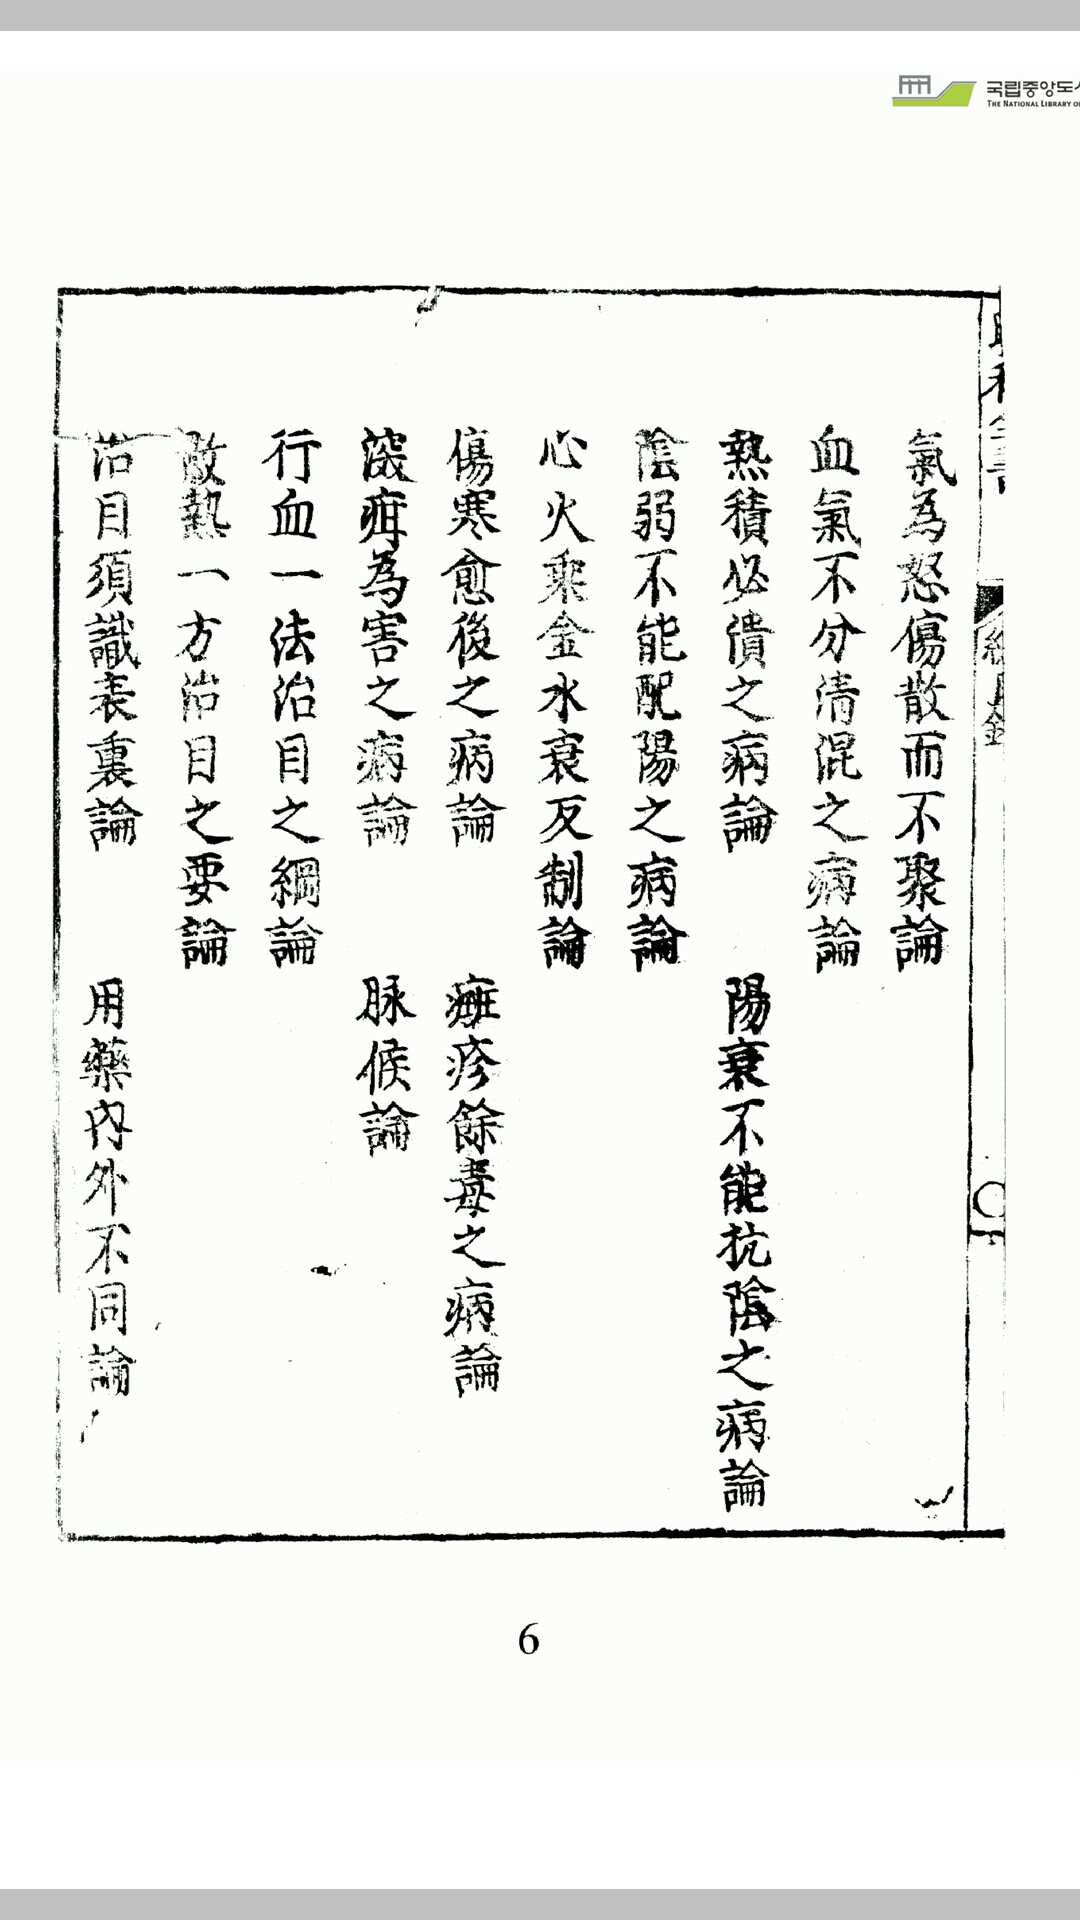 국립중앙도
THE NATIONAL LIBRARY O
氣為怒傷散而不聚論
血氣不分清混之病論
熱積必潰之病論 陽衰不能抗陰之病論
陰弱不能配陽之病論
心火乘金水衰反制論
傷寒愈後之病論 癍疹餘毒之病論
深疳為害之病論 脉候論
行血一法治目之綱論
散熱一方治目之要論
治目須識表裏論 用藥內外不同論
6